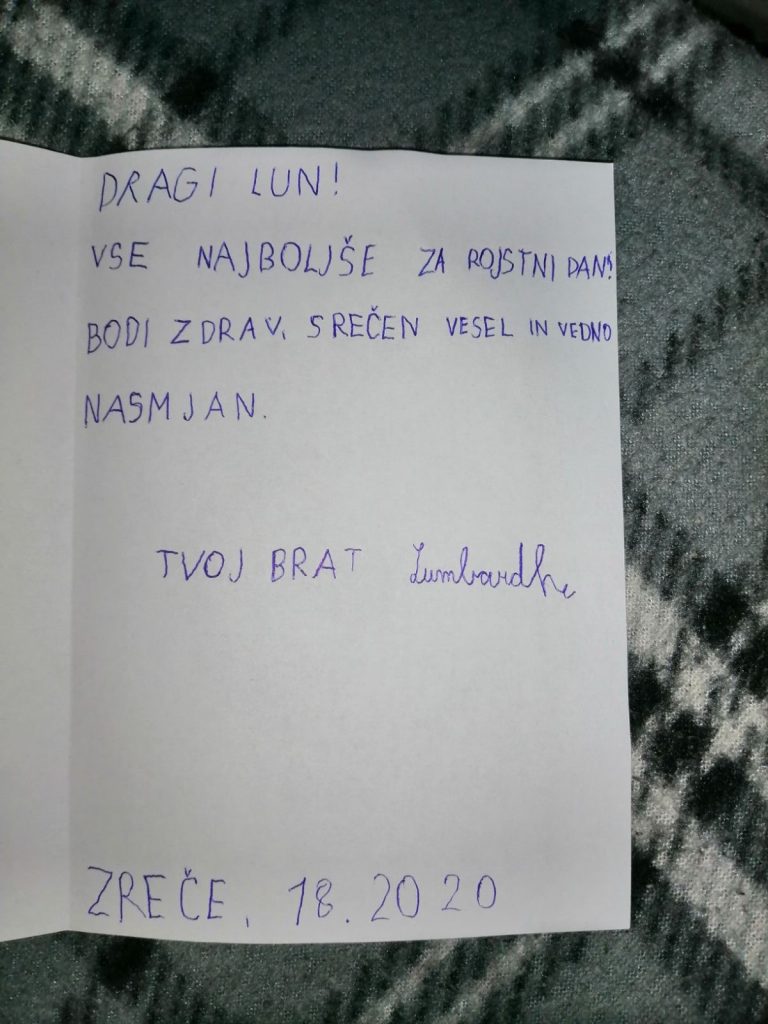 DRAGI LUN!
VSE NAJBOLJŠE ZA ROJSTNI DAN!
BODI ZDRAV, SREČEN VESEL IN VEDNO
NASMJAN.
TVOJ BRAT Lumbardhi
ZREČE, 18.2020